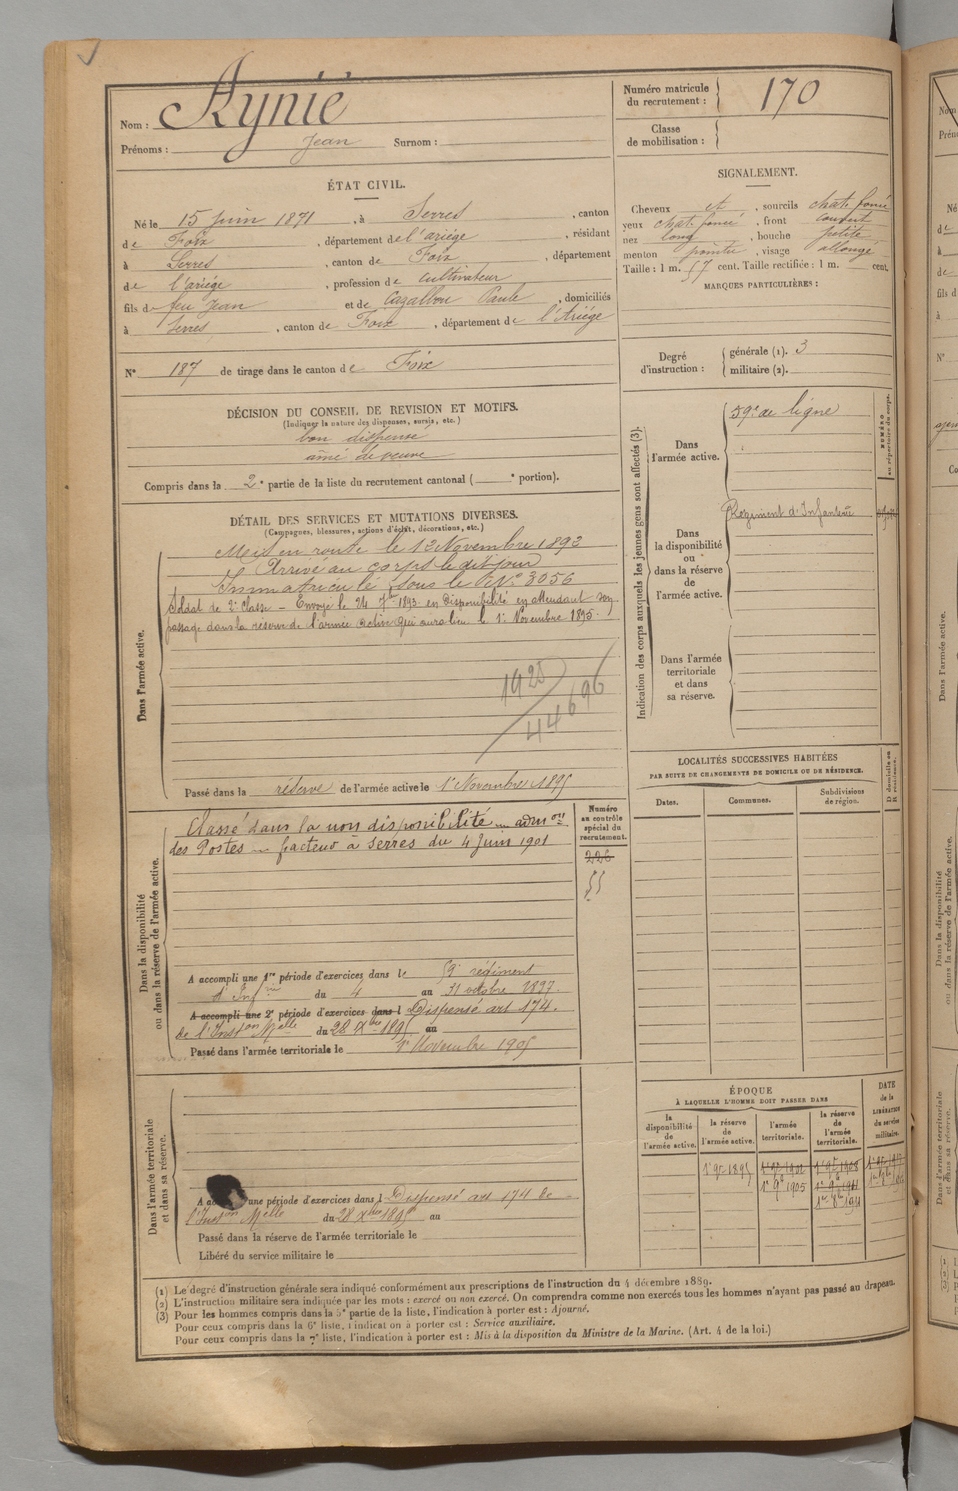 Nom : Aynié
Prénoms : Jean Surnom :
Numéro matricule
du recrutement : 170
Classe
de mobilisation :
ÉTAT CIVIL.
Né le 15 juin 1871, à Serres, canton
de Foix, département de l'ariége, résidant
à Serres, canton de Foix, département
de l'ariége, profession de cultivateur
fils de feu Jean et de Cazalbou Paule, domiciliés
à Serres, canton de Foix, département de l'Ariége
N° 187 de tirage dans le canton de Foix
SIGNALEMENT.
Cheveux et, sourcils chat. foncé
yeux chat. foncé, front couvert
nez long, bouche petite
menton pointu, visage allongé
Taille : 1 m. 57 cent. Taille rectifiée : 1 m. cent.
MARQUES PARTICULIÈRES :
Degré
d'instruction :
générale (1). 3
militaire (2).
DÉCISION DU CONSEIL DE REVISION ET MOTIFS.
(Indiquer la nature des dispenses, sursis, etc.)
bon dispensé
aîné de veuve
Compris dans la 2e partie de la liste du recrutement cantonal ( e portion).
DÉTAIL DES SERVICES ET MUTATIONS DIVERSES.
(Campagnes, blessures, actions d'éclat, décorations, etc.)
Dans l'armée active.
Mis en route le 12 Novembre 1892
Arrivé au corps le dit jour
Immatriculé sous le N° 3056
Soldat de 2e Classe – Envoyé le 24 7bre 1893 en Disponibilité en attendant son
passage dans la réserve de l'armée active qui aura lieu le 1er Novembre 1895.
1925
44696
Passé dans la réserve de l'armée active le 1er Novembre 1895
Indication des corps auxquels les jeunes gens sont affectés (3).
NUMÉRO
au répertoire du corps.
Dans
l'armée active.
59e de ligne
Dans
la disponibilité
ou
dans la réserve
de
l'armée active.
Régiment d'Infanterie
Dans l'armée
territoriale
et dans
sa réserve.
LOCALITÉS SUCCESSIVES HABITÉES
PAR SUITE DE CHANGEMENTS DE DOMICILE OU DE RÉSIDENCE.
Dates.
Communes.
Subdivisions
de région.
D. domicile ou
R. résidence.
Dans la disponibilité
ou dans la réserve de l'armée active.
Numéro
au contrôle
spécial du
recrutement.
226
Classé dans la non disponibilité – admon
des Postes – facteur à Serres du 4 Juin 1901
A accompli une 1re période d'exercices dans le 59e régiment
d'Infrie du 4 au 31 octobre 1897.
A accompli une 2e période d'exercices dans l Dispensé art 174.
de l'Inston Melle du 28 Xbre 1895 au
Passé dans l'armée territoriale le 1er Novembre 1905
Dans l'armée territoriale
et dans sa réserve.
A ac une période d'exercices dans l Dispensé art 174 de
l'Inston Melle du 28 Xbre 1895 au
Passé dans la réserve de l'armée territoriale le
Libéré du service militaire le
ÉPOQUE
À LAQUELLE L'HOMME DOIT PASSER DANS
la
disponibilité
de
l'armée active.
la réserve
de
l'armée active.
l'armée
territoriale.
la réserve
de
l'armée
territoriale.
DATE
de la
LIBÉRATION
du service
militaire.
1er 9bre 1895
1er 9bre 1905
(1) Le degré d'instruction générale sera indiqué conformément aux prescriptions de l'instruction du 4 décembre 1889.
(2) L'instruction militaire sera indiquée par les mots : exercé ou non exercé. On comprendra comme non exercés tous les hommes n'ayant pas passé au drapeau.
(3) Pour les hommes compris dans la 5e partie de la liste, l'indication à porter est : Ajourné.
Pour ceux compris dans la 6e liste, l'indication à porter est : Service auxiliaire.
Pour ceux compris dans la 7e liste, l'indication à porter est : Mis à la disposition du Ministre de la Marine. (Art. 4 de la loi.)